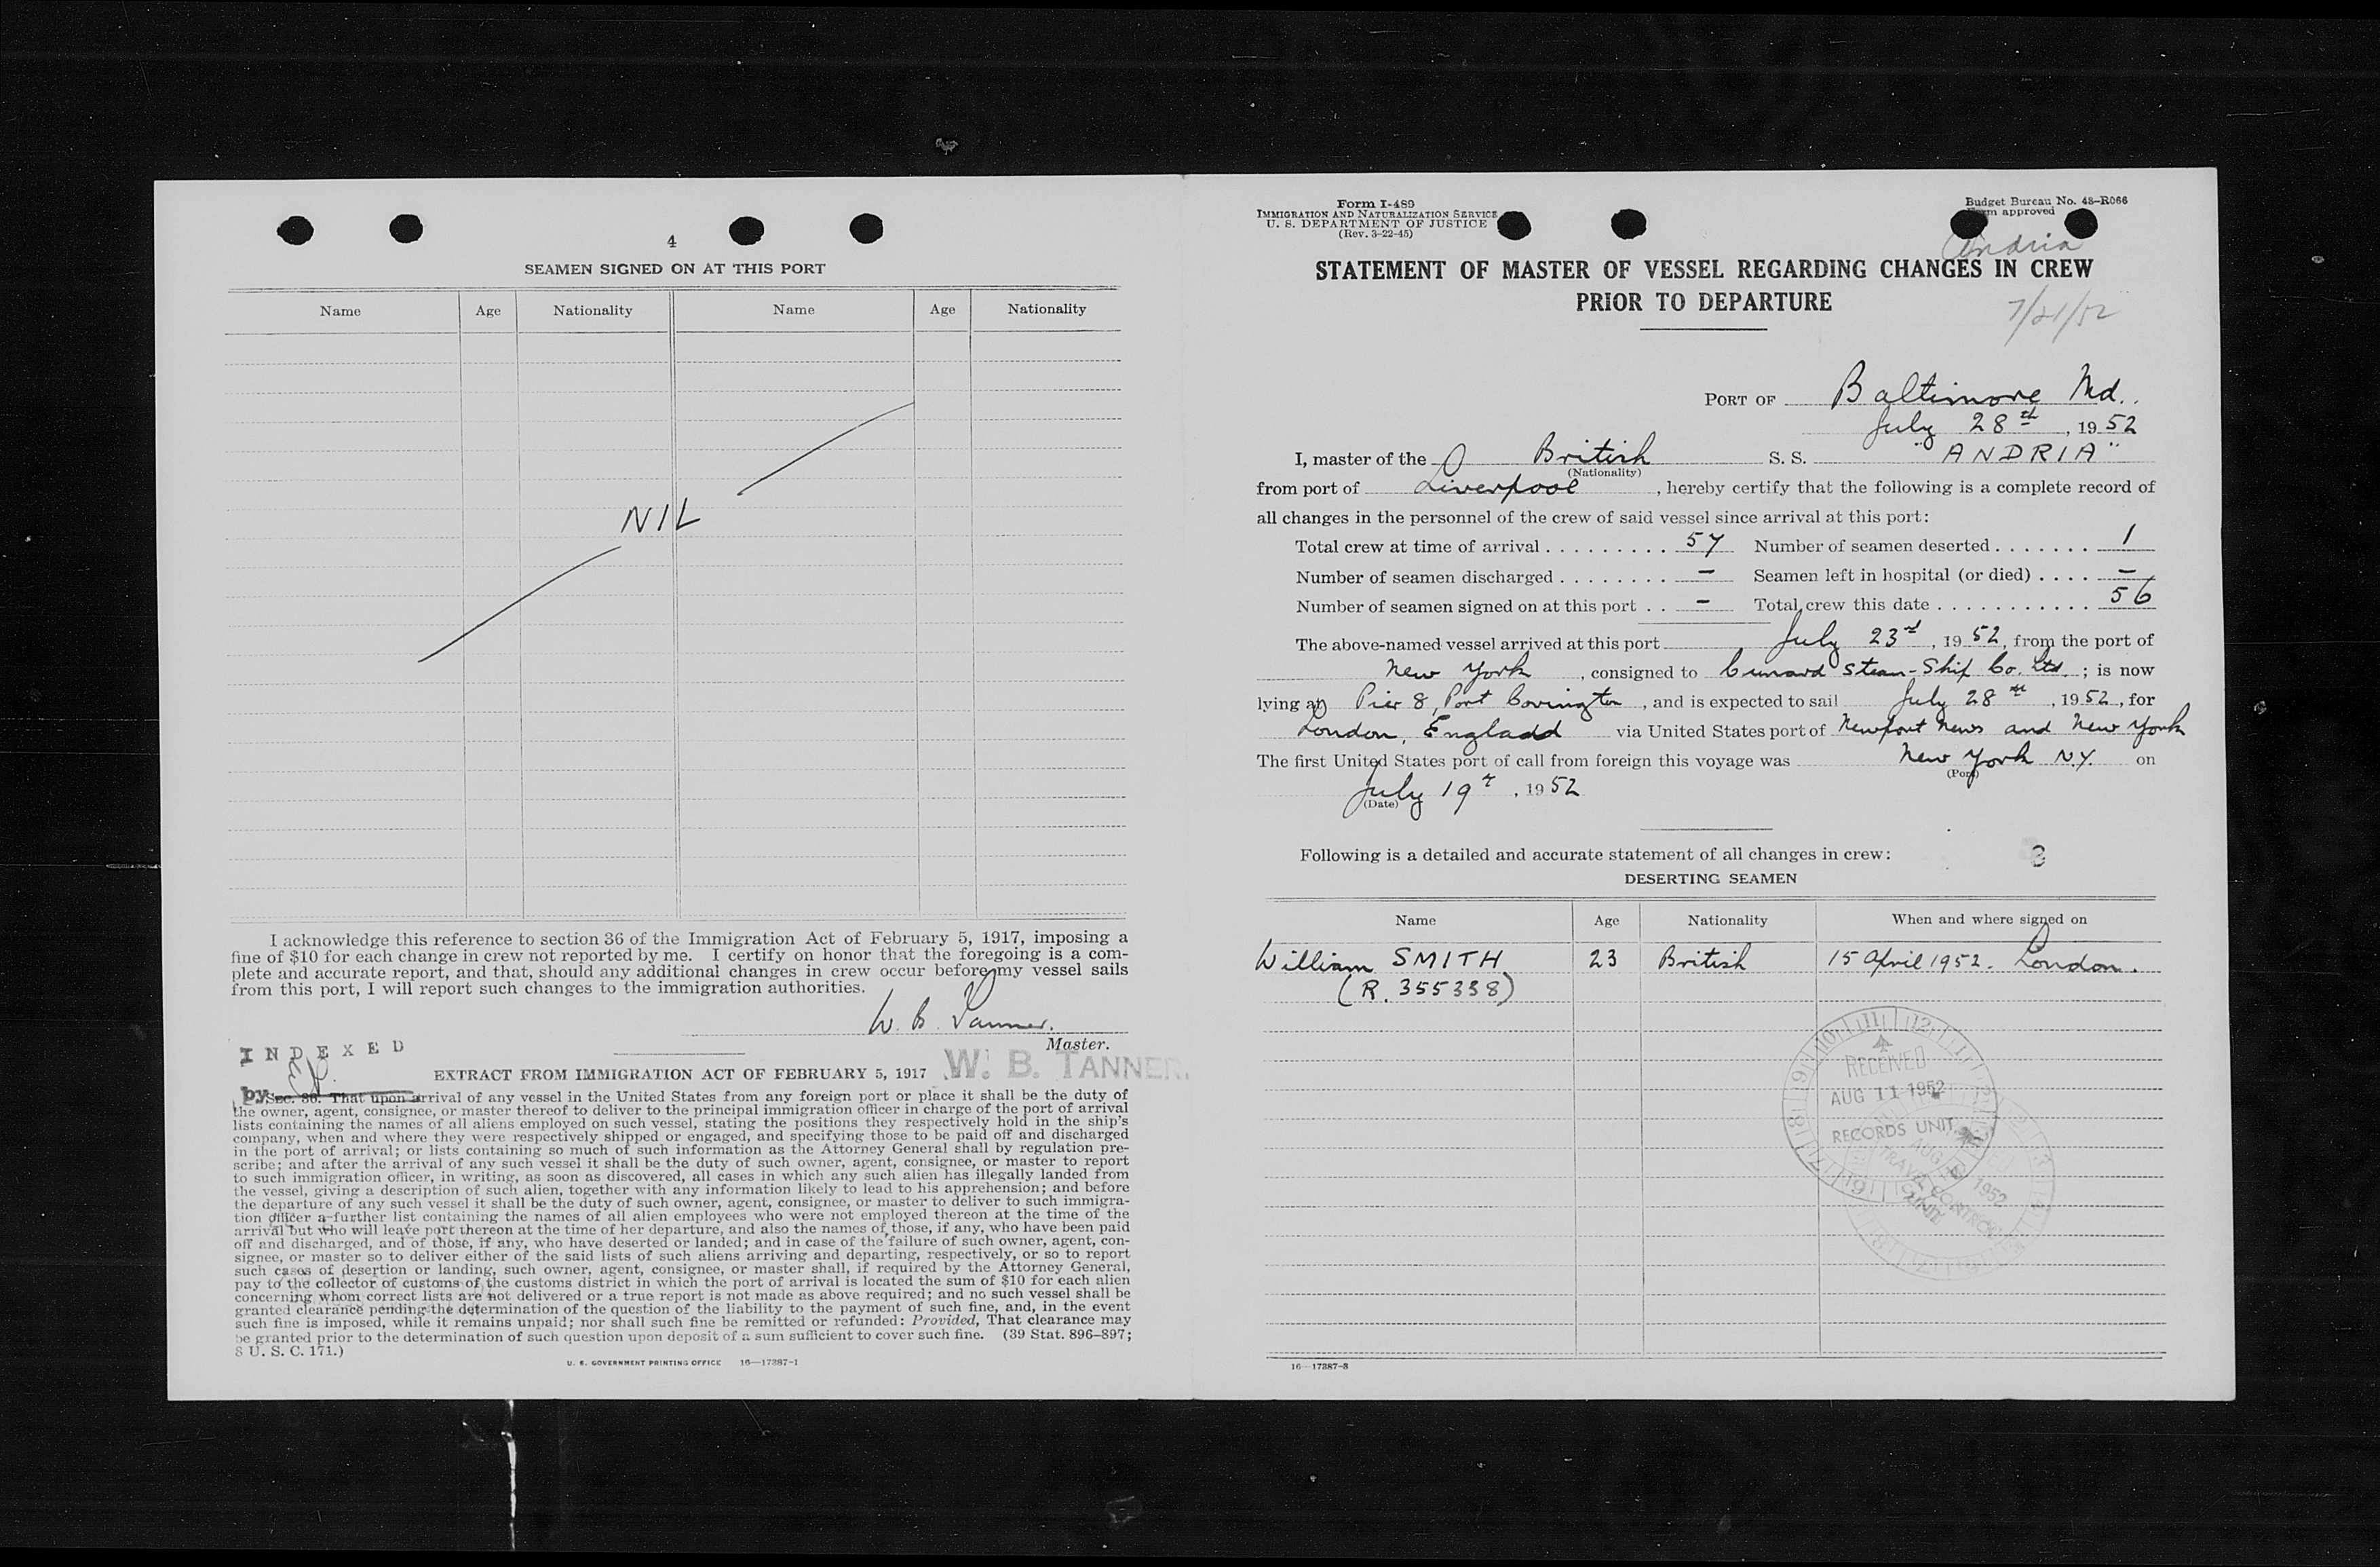 4
SEAMEN SIGNED ON AT THIS PORT
Name Age Nationality Name Age Nationality
NIL
I acknowledge this reference to section 36 of the Immigration Act of February 5, 1917, imposing a
fine of $10 for each change in crew not reported by me. I certify on honor that the foregoing is a com-
plete and accurate report, and that, should any additional changes in crew occur before my vessel sails
from this port, I will report such changes to the immigration authorities.
W. B. Tanner.
Master.
INDEXED
W. B. TANNER.
EXTRACT FROM IMMIGRATION ACT OF FEBRUARY 5, 1917
by
Sec. 36. That upon arrival of any vessel in the United States from any foreign port or place it shall be the duty of
the owner, agent, consignee, or master thereof to deliver to the principal immigration officer in charge of the port of arrival
lists containing the names of all aliens employed on such vessel, stating the positions they respectively hold in the ship's
company, when and where they were respectively shipped or engaged, and specifying those to be paid off and discharged
in the port of arrival; or lists containing so much of such information as the Attorney General shall by regulation pre-
scribe; and after the arrival of any such vessel it shall be the duty of such owner, agent, consignee, or master to report
to such immigration officer, in writing, as soon as discovered, all cases in which any such alien has illegally landed from
the vessel, giving a description of such alien, together with any information likely to lead to his apprehension; and before
the departure of any such vessel it shall be the duty of such owner, agent, consignee, or master to deliver to such immigra-
tion officer a further list containing the names of all alien employees who were not employed thereon at the time of the
arrival but who will leave port thereon at the time of her departure, and also the names of those, if any, who have been paid
off and discharged, and of those, if any, who have deserted or landed; and in case of the failure of such owner, agent, con-
signee, or master so to deliver either of the said lists of such aliens arriving and departing, respectively, or so to report
such cases of desertion or landing, such owner, agent, consignee, or master shall, if required by the Attorney General,
pay to the collector of customs of the customs district in which the port of arrival is located the sum of $10 for each alien
concerning whom correct lists are not delivered or a true report is not made as above required; and no such vessel shall be
granted clearance pending the determination of the question of the liability to the payment of such fine, and, in the event
such fine is imposed, while it remains unpaid; nor shall such fine be remitted or refunded: Provided, That clearance may
be granted prior to the determination of such question upon deposit of a sum sufficient to cover such fine. (39 Stat. 896-897;
8 U. S. C. 171.)
U. S. GOVERNMENT PRINTING OFFICE 16—17387-1
Form I-489
IMMIGRATION AND NATURALIZATION SERVICE
U. S. DEPARTMENT OF JUSTICE
(Rev. 3-22-45)
Budget Bureau No. 43-R066
Form approved
Andria
STATEMENT OF MASTER OF VESSEL REGARDING CHANGES IN CREW
PRIOR TO DEPARTURE
7/21/52
PORT OF Baltimore Md.
July 28th, 1952
I, master of the British S. S. "ANDRIA"
(Nationality)
from port of Liverpool, hereby certify that the following is a complete record of
all changes in the personnel of the crew of said vessel since arrival at this port:
Total crew at time of arrival . . . . . . . . . 57 Number of seamen deserted . . . . . . . 1
Number of seamen discharged . . . . . . . . - Seamen left in hospital (or died) . . . . -
Number of seamen signed on at this port . . - Total crew this date . . . . . . . . . . . 56
The above-named vessel arrived at this port July 23rd, 1952, from the port of
New York, consigned to Cunard Steam-Ship Co. Ltd.; is now
lying at Pier 8, Port Covington, and is expected to sail July 28th, 1952, for
London, Engladd via United States port of Newport News and New York
The first United States port of call from foreign this voyage was New York N.Y. on
(Port)
July 19th, 1952
(Date)
Following is a detailed and accurate statement of all changes in crew:
3
DESERTING SEAMEN
Name Age Nationality When and where signed on
William SMITH 23 British 15 April 1952. London.
(R. 355338)
RECEIVED
AUG 11 1952
RECORDS UNIT
TRAVEL CONTROL
UNIT
16—17387-3